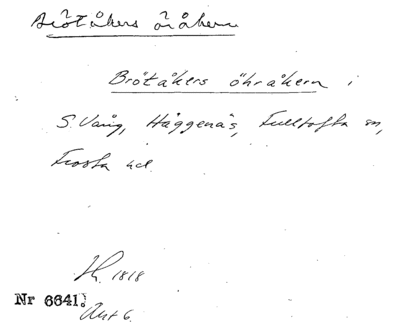 Brötåkers öråkern
Brötåkers öhråkern i
S. Vång, Häggenäs, Fulltofta sn,
Frosta hd.
Sk. 1818
Nr 6641.
Akt 6.